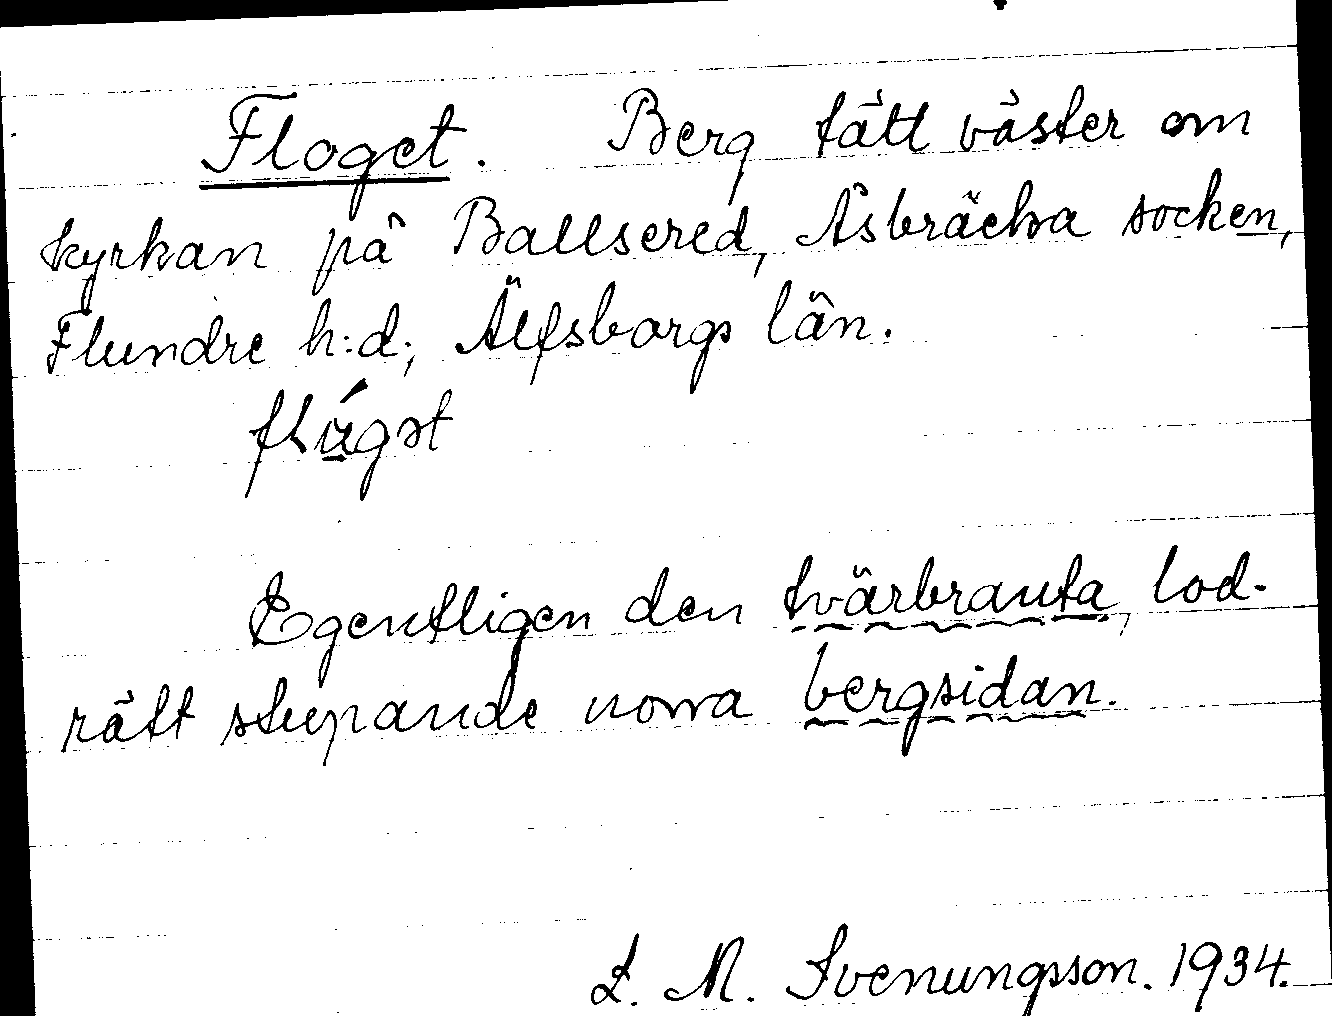 Floget. Berg tätt väster om
kyrkan på Ballsered, Åsbräcka socken,
Flundre h:d; Älfsborgs län.
Egentligen den tvärbranta, lod-
rätt stupande norra bergsidan.
L. M. Svenungsson. 1934.